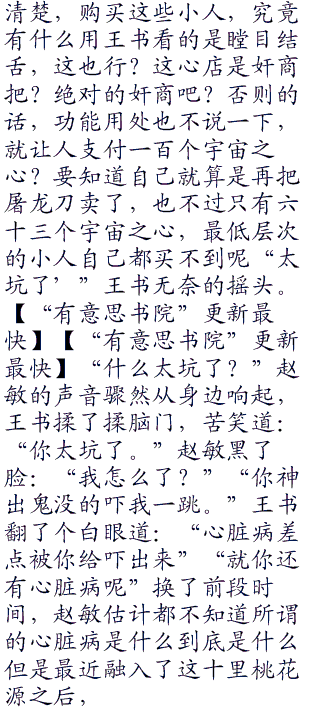 清楚，购买这些小人，究竟
有什么用王书看的是瞠目结
舌，这也行？这心店是奸商
把？绝对的奸商吧？否则的
话，功能用处也不说一下，
就让人支付一百个宇宙之
心？要知道自己就算是再把
屠龙刀卖了，也不过只有六
十三个宇宙之心，最低层次
的小人自己都买不到呢“太
坑了’”王书无奈的摇头。
【“有意思书院”更新最
快】【“有意思书院”更新
最快】“什么太坑了？”赵
敏的声音骤然从身边响起，
王书揉了揉脑门，苦笑道：
“你太坑了。”赵敏黑了
脸：“我怎么了？”“你神
出鬼没的吓我一跳。”王书
翻了个白眼道：“心脏病差
点被你给吓出来”“就你还
有心脏病呢”换了前段时
间，赵敏估计都不知道所谓
的心脏病是什么到底是什么
但是最近融入了这十里桃花
源之后，